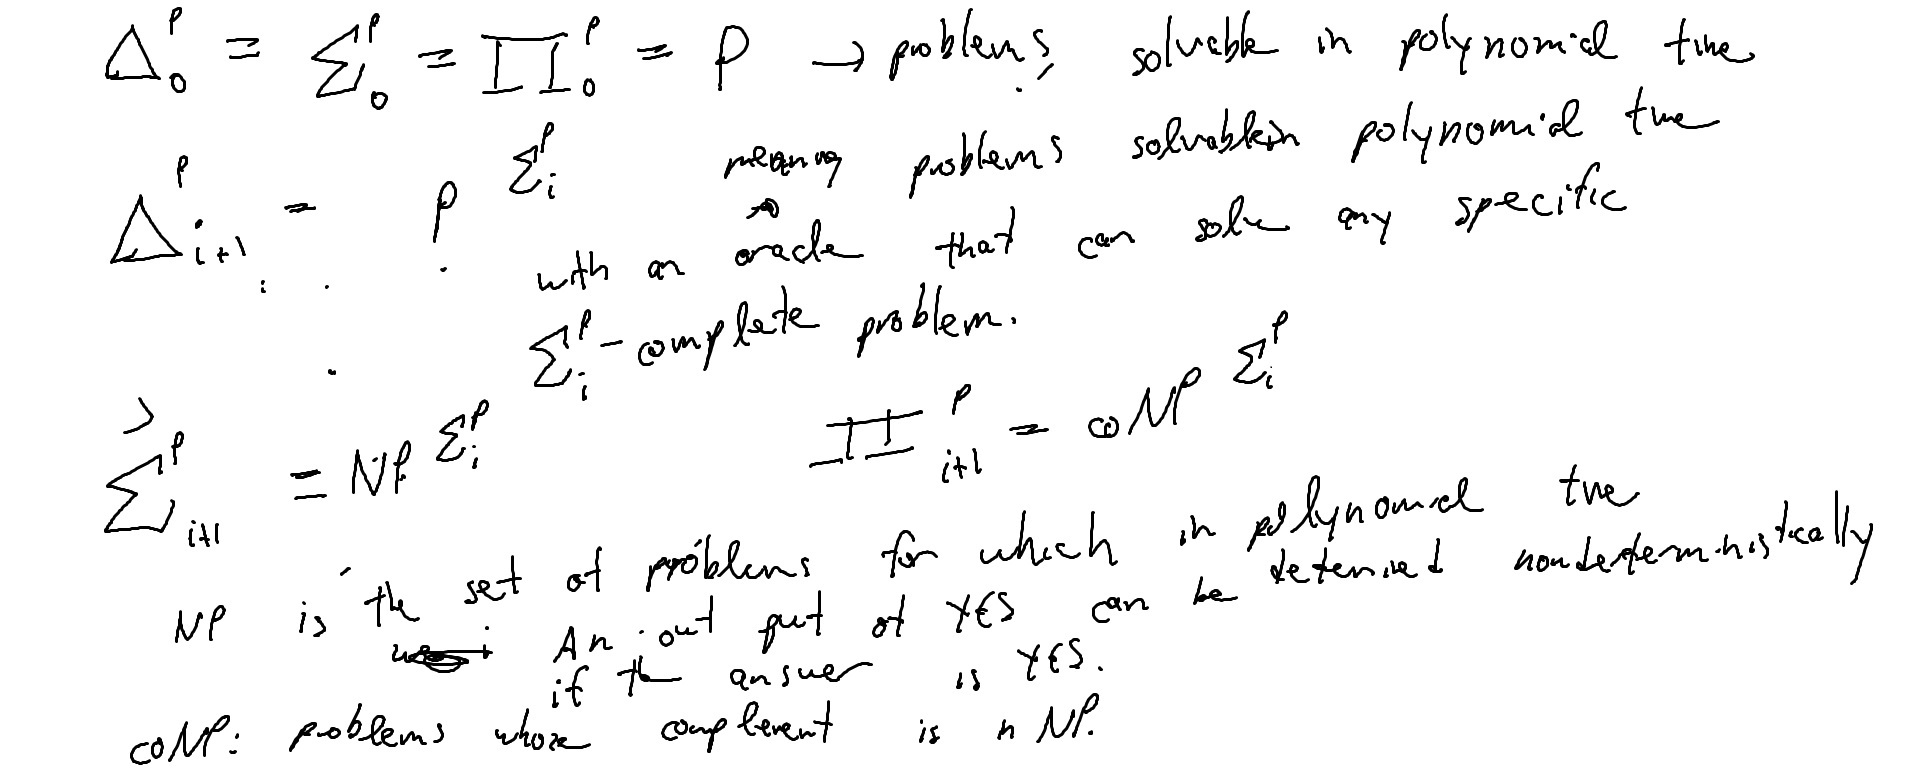 Δ₀ᵖ = Σ₀ᵖ = Π₀ᵖ = P → problems solvable in polynomial time
Δᵢ₊₁ᵖ = P^Σᵢᵖ meaning problems solvable in polynomial time
with an oracle that can solve any specific
Σᵢᵖ-complete problem.
Σᵢ₊₁ᵖ = NP^Σᵢᵖ Πᵢ₊₁ᵖ = coNP^Σᵢᵖ
NP is the set of problems for which in polynomial time
An output of YES can be determined nondeterministically
if the answer is YES.
coNP: problems whose complement is in NP.